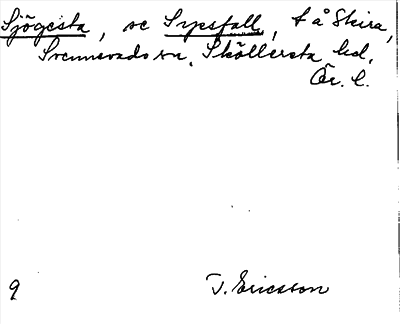 Sjögesta, se Sypsfall, t å Skira,
Svennevads sn, Sköllersta hd,
Ör. l.
9 T. Ericsson